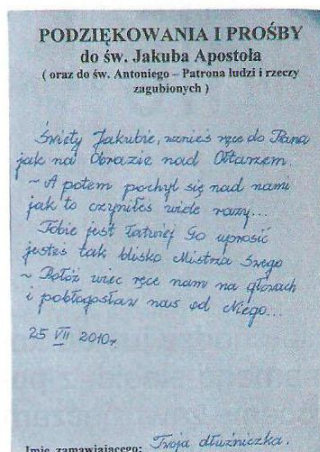 PODZIĘKOWANIA I PROŚBY
do św. Jakuba Apostoła
( oraz do św. Antoniego – Patrona ludzi i rzeczy
zagubionych )
Święty Jakubie, wznieś ręce do Pana
jak na Obrazie nad Ołtarzem.
~ A potem pochyl się nad nami
jak to czyniłeś wiele razy...
Tobie jest łatwiej Go uprosić
jesteś tak blisko Mistrza Swego
~ Połóż więc ręce nam na głowach
i pobłogosław nas od Niego...
25 VII 2010r
Imię zamawiającego: Twoja dłużniczka.